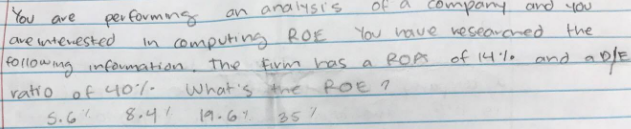 You are performing an analysis of a company and you
are interested in computing ROE You have researched the
following information. The firm has a ROA of 14% and a D/E
ratio of 40%. What's the ROE?
5.6% 8.4% 19.6% 35%